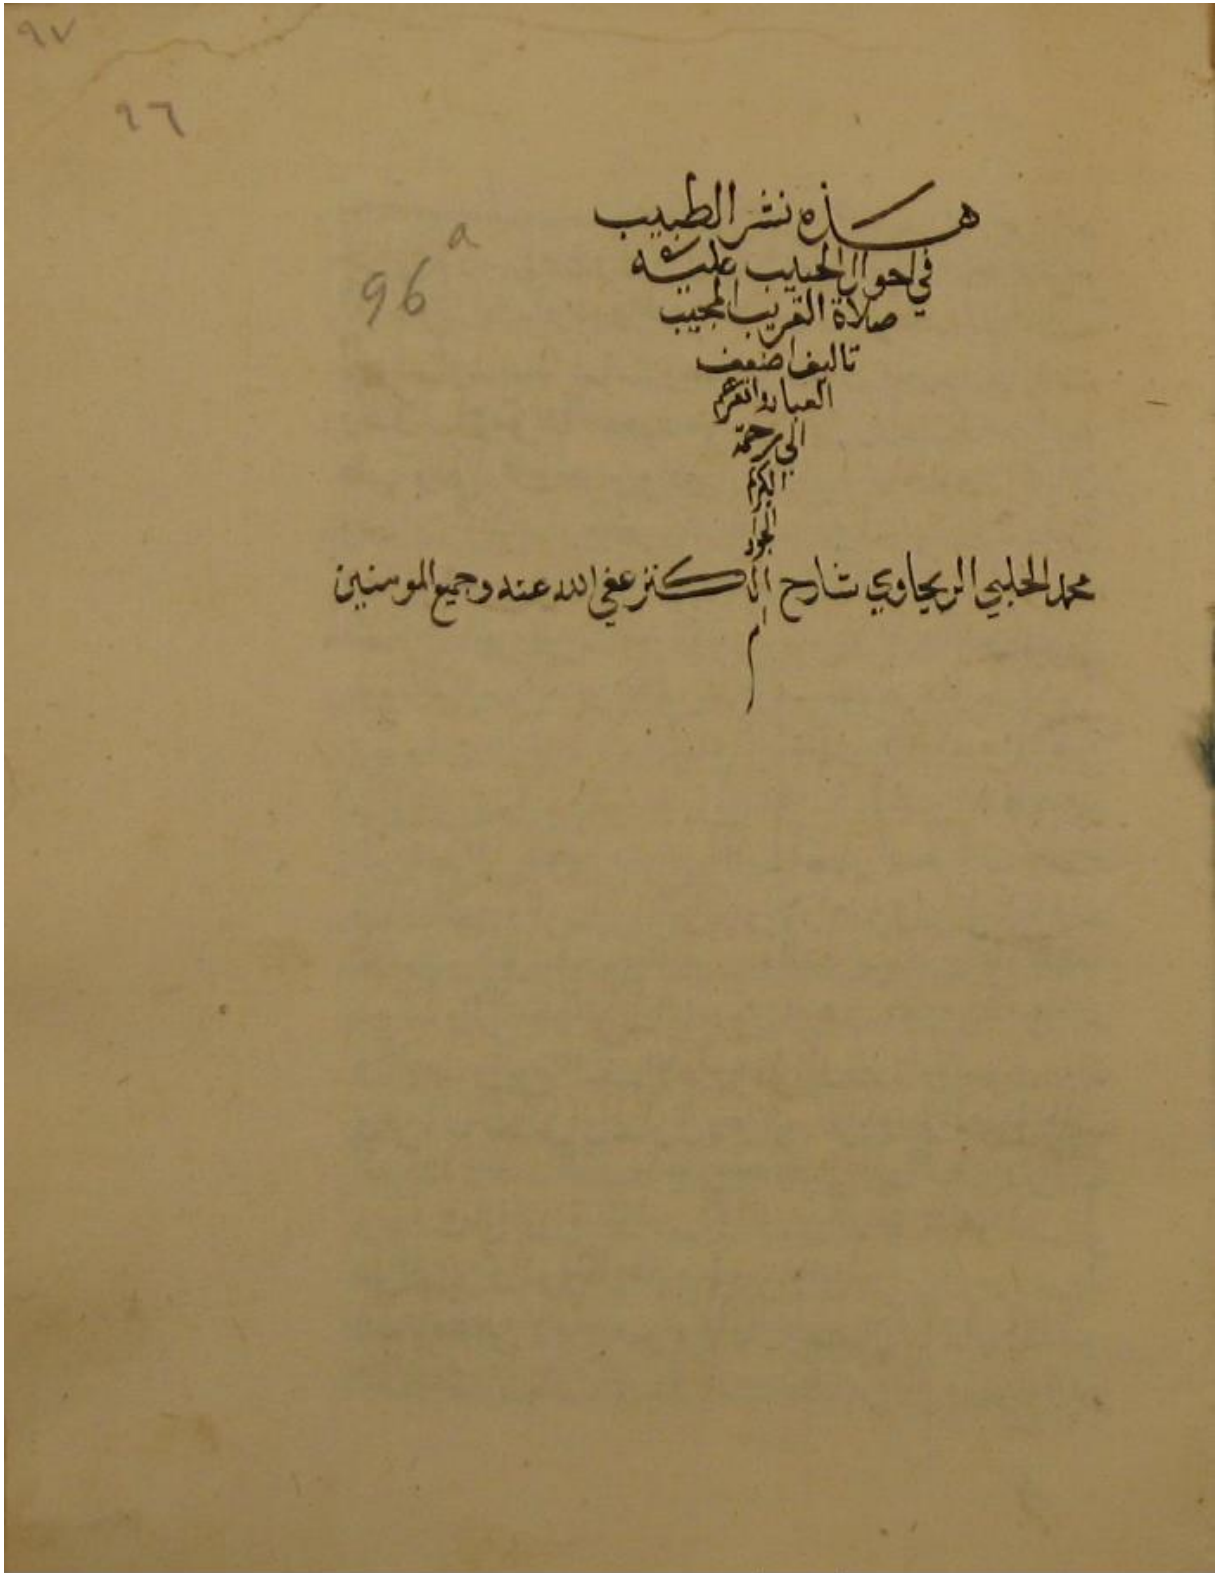 ٩٧
٩٦
96 a
هذه نشر الطبيب
في احوال الحبيب عليه
صلاة القريب المجيب
تاليف اضعف
العباد وافقرهم
الي رحمة
الكريم
الجواد
محمد الحلبي الريحاوي شارح الكنز عفي الله عنه وجميع المومنين
ام